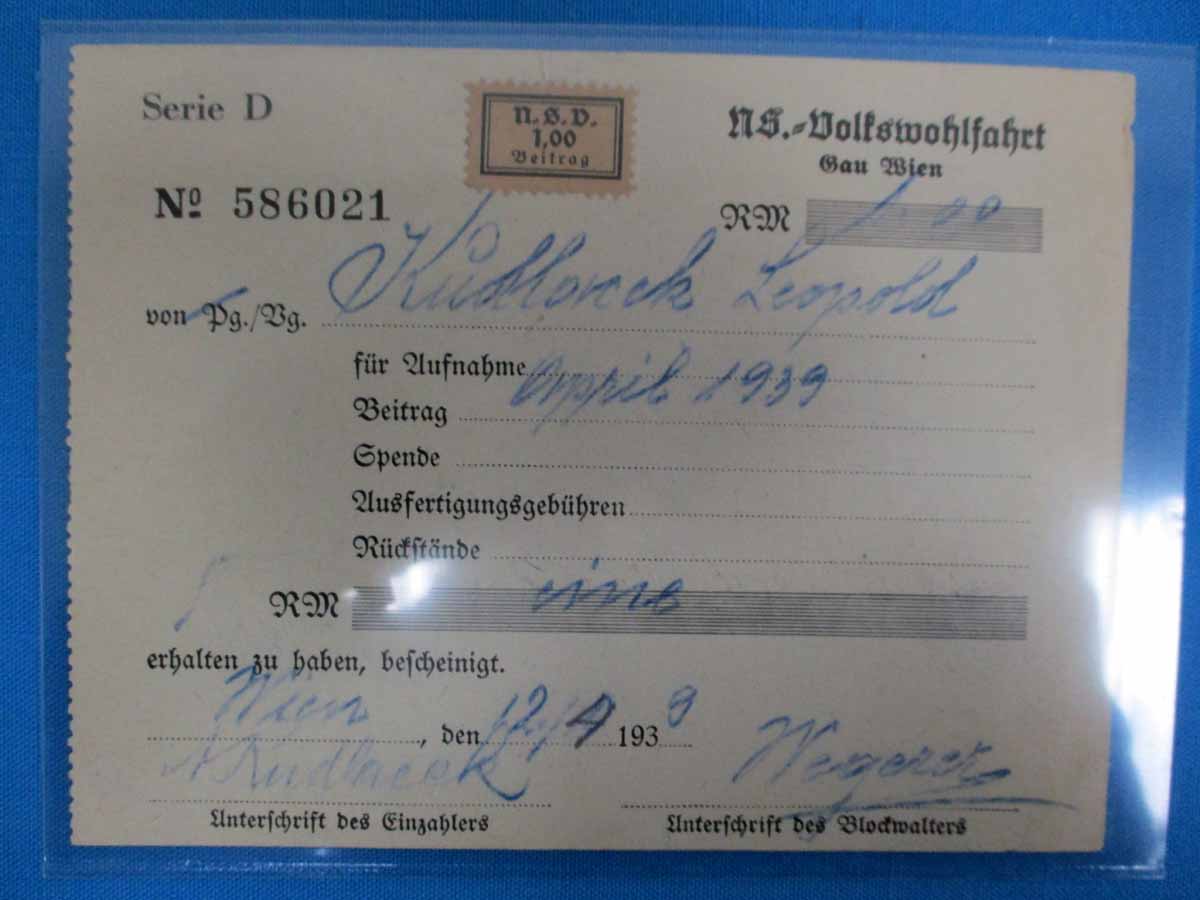 Serie D
N.S.V.
1,00
Beitrag
NS.-Volkswohlfahrt
Gau Wien
Nº 586021
RM 1.00
Leopold
von Pg./Vg.
für Aufnahme
April 1939
Beitrag
Spende
Ausfertigungsgebühren
Rückstände
RM eine
erhalten zu haben, bescheinigt.
Wien, den 12/4 1939
Wegerer
Unterschrift des Einzahlers
Unterschrift des Blockwalters